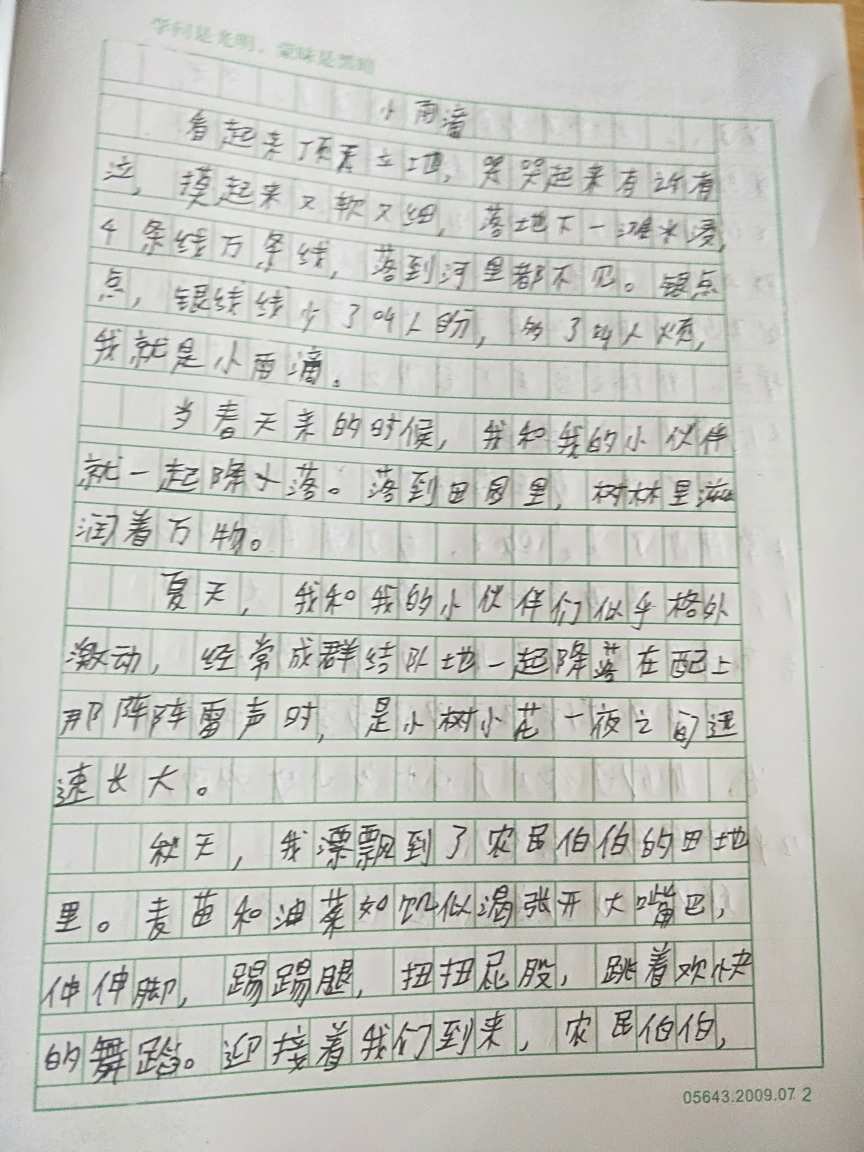 学问是光明，蒙昧是黑暗
小雨滴
看起来顶天立地，哭哭起来有许有
泣，摸起来又软又细，落地下一滩水漫，
千条线万条线，落到河里都不见。银点
点，银线线少了叫人盼，多了叫人烦，
我就是小雨滴。
当春天来的时候，我和我的小伙伴
就一起降小落。落到田园里，树林里滋
润着万物。
夏天，我和我的小伙伴们似乎格外
激动，经常成群结队地一起降落在配上
那阵阵雷声时，是小树小花一夜之间迅
速长大。
秋天，我漂飘到了农民伯伯的田地
里。麦苗和油菜如饥似渴张开大嘴巴，
伸伸脚，踢踢腿，扭扭屁股，跳着欢快
的舞蹈。迎接着我们到来，农民伯伯，
05643.2009.07 2